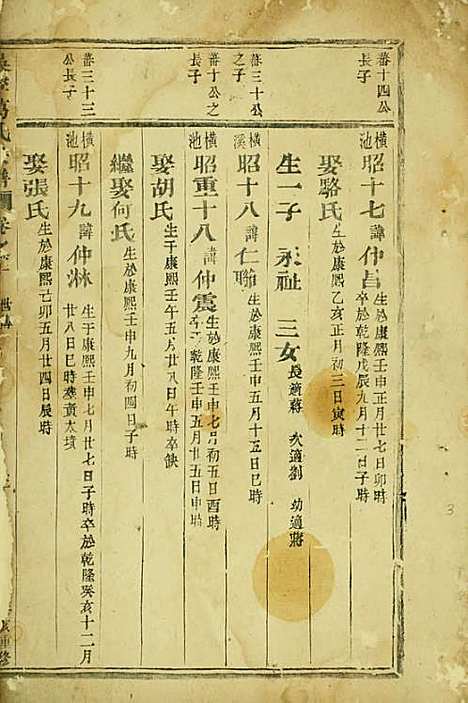 蕃十四公
長子
橫池
昭十七
諱仲昌
生於康熙壬申正月廿七日卯時
卒於乾隆戊辰九月十二日子時
娶駱氏
生於康熙乙亥正月初三日寅時
生一子
永祉
三女
長適蔣
次適劉
幼適蔣
蕃三十公
之子
橫溪
昭十八
諱仁聯
生於康熙壬申五月十五日巳時
蕃十公之
長子
橫池
昭重十八
諱仲震
生於康熙壬申七月初五日酉時
卒於乾隆壬申五月廿五日申時
娶胡氏
生于康熙壬午五月廿八日午時卒缺
繼娶何氏
生於康熙壬申九月初四日子時
蕃三十三
公長子
橫池
昭十九
諱仲淋
生于康熙壬申七月廿七日子時卒於乾隆癸亥十二月
廿八日巳時葬黃太墳
娶張氏
生於康熙己卯五月廿四日辰時
重修
3